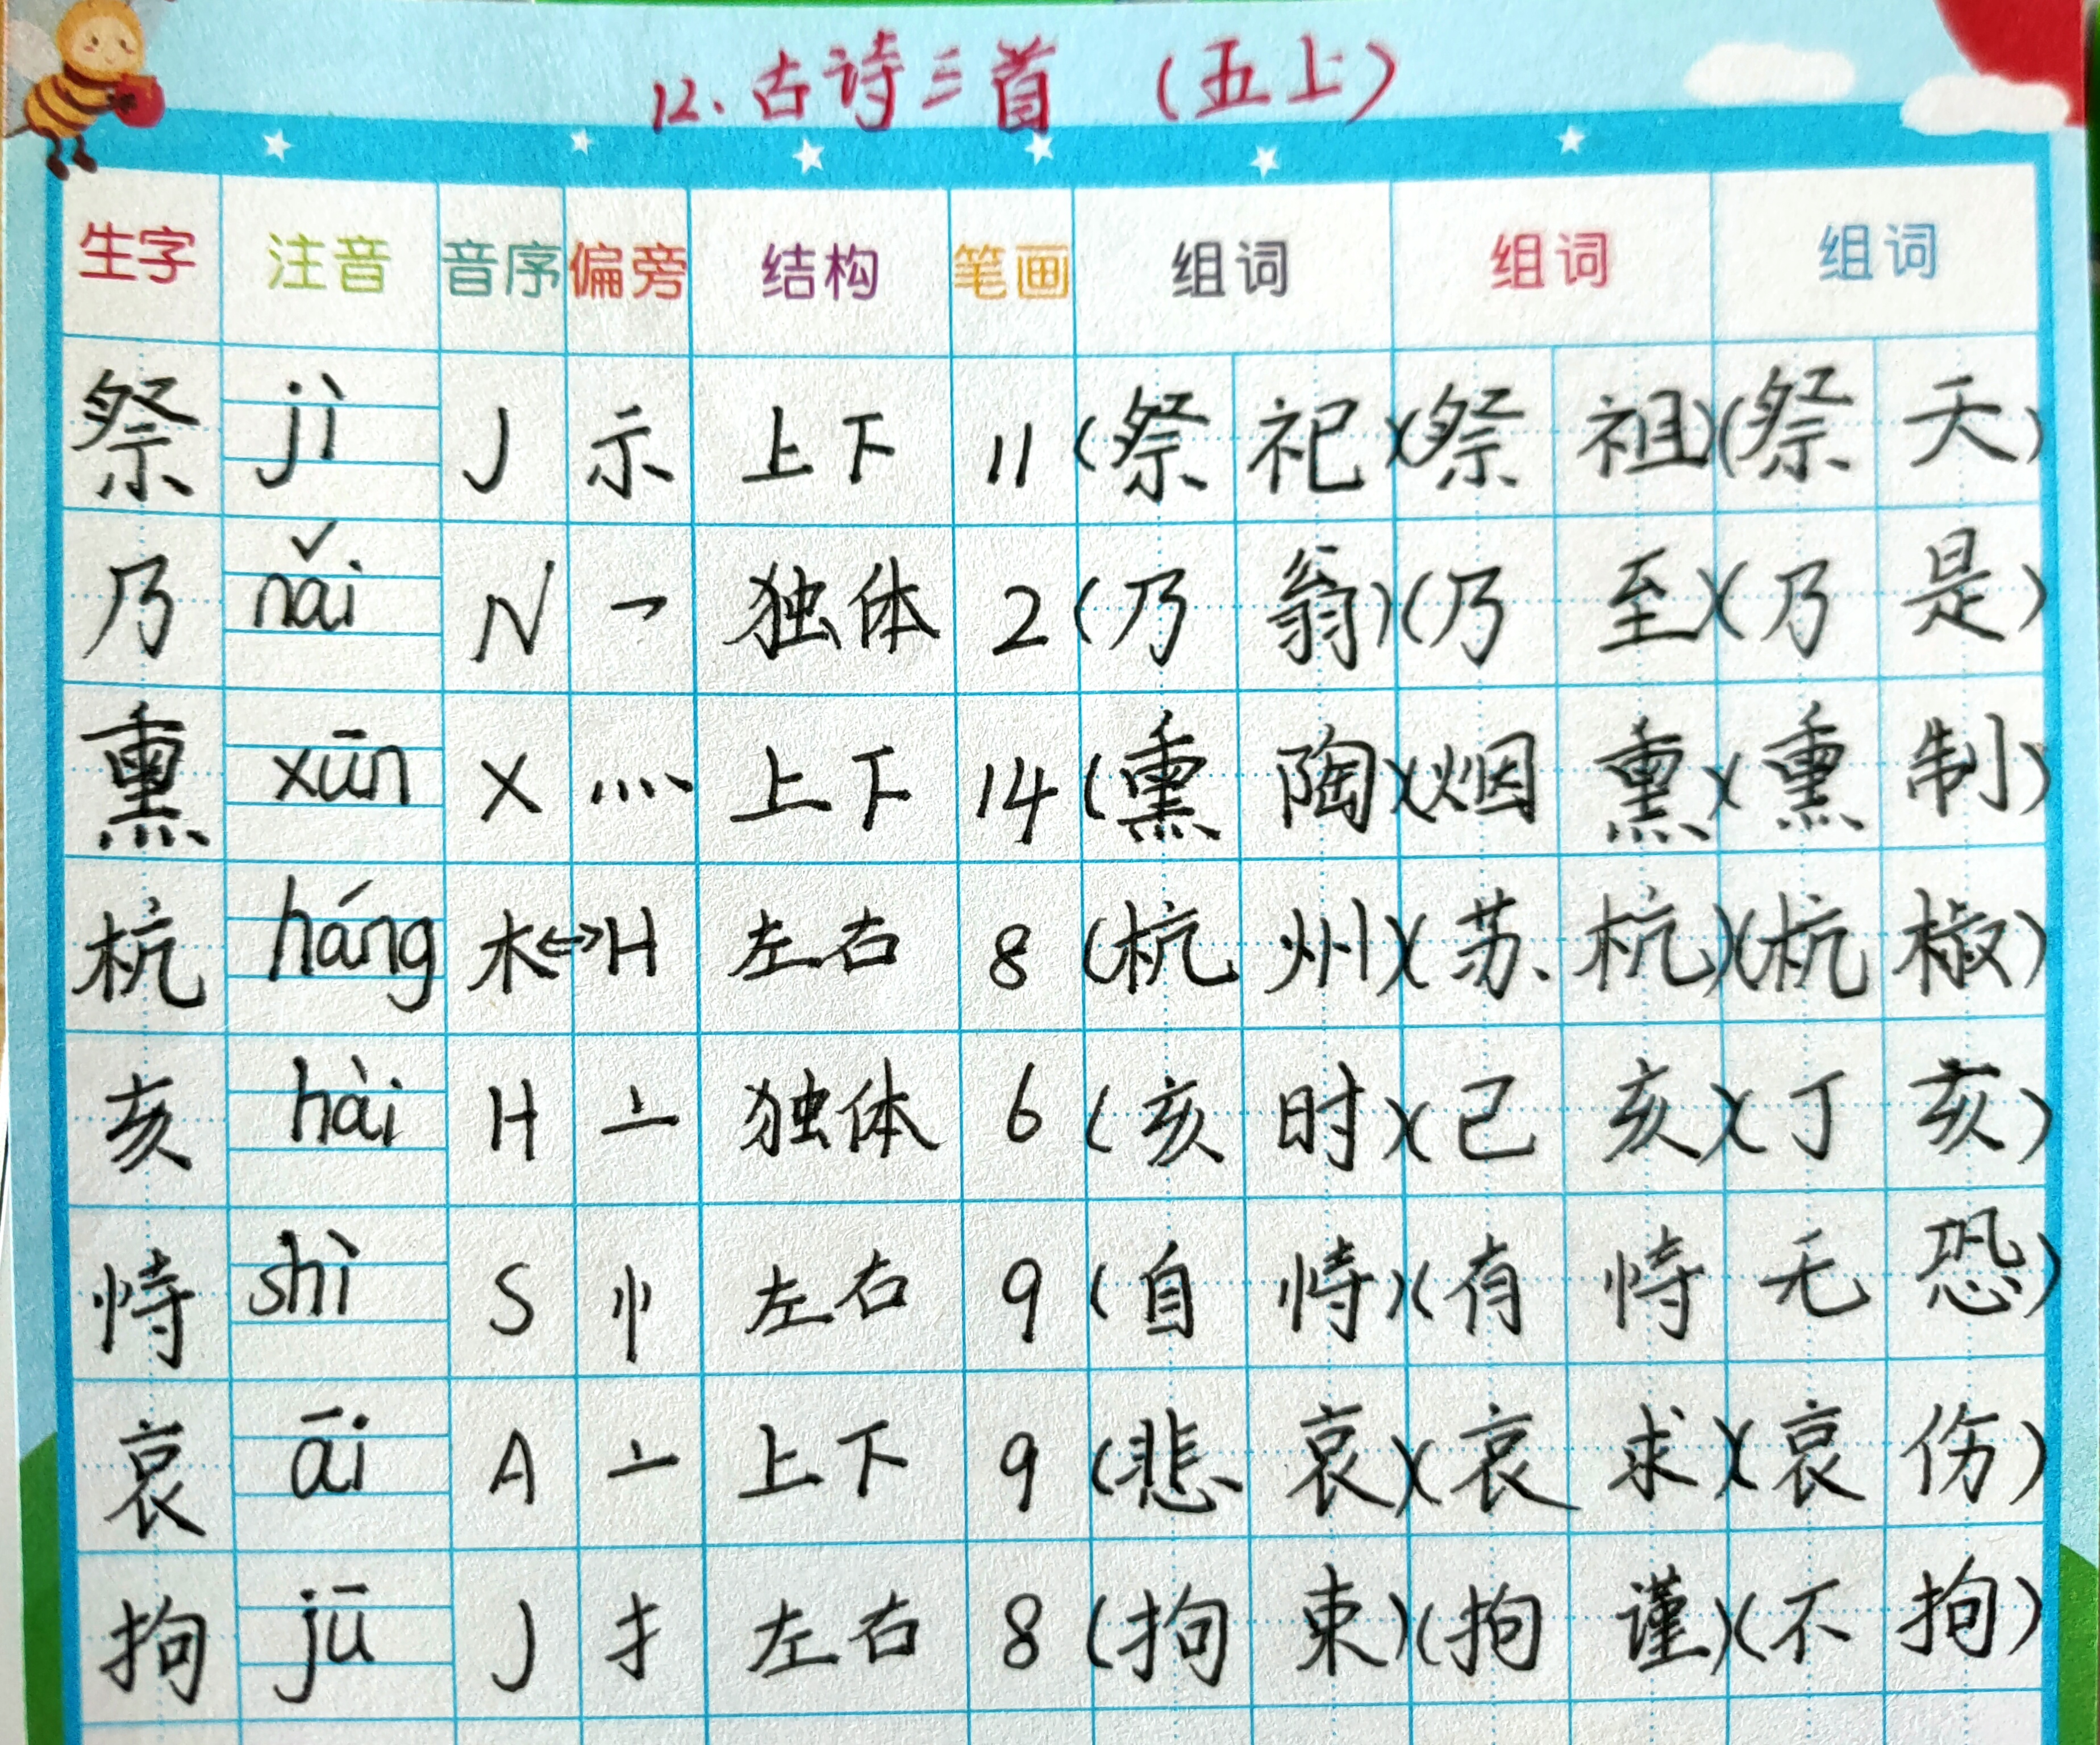 12.古诗三首 (五上)
生字 注音 音序 偏旁 结构 笔画 组词 组词 组词
祭 jì J 示 上下 11 (祭祀)(祭祖)(祭天)
乃 nǎi N 乛 独体 2 (乃翁)(乃至)(乃是)
熏 xūn X 灬 上下 14 (熏陶)(烟熏)(熏制)
杭 háng 木↔H 左右 8 (杭州)(苏杭)(杭椒)
亥 hài H 亠 独体 6 (亥时)(己亥)(丁亥)
恃 shì S 忄 左右 9 (自恃)(有恃无恐)
哀 āi A 亠 上下 9 (悲哀)(哀求)(哀伤)
拘 jū J 扌 左右 8 (拘束)(拘谨)(不拘)